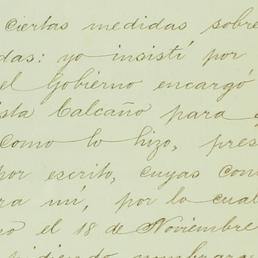 ciertas medidas sobre
das: yo insistí por
el Gobierno encargó
ista Calcaño para
Como lo hizo, pres
por escrito, cuyas con
ra mí, por lo cual
o el 18 de Noviembre